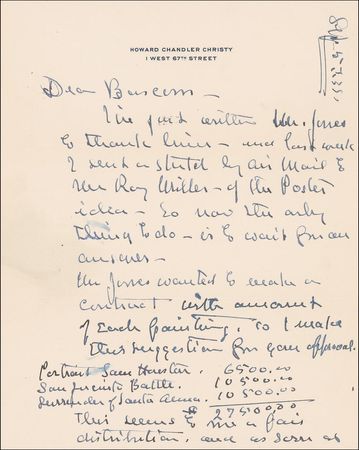 HOWARD CHANDLER CHRISTY
1 WEST 67TH STREET
Dear Bascom -
I've just written Mr. Jones
to thank him - and last week
I sent a sketch by air Mail to
Mr Ray Miller - of the Poster
idea - So now the only
thing to do - is to wait for an
answer -
Mr Jones wanted to make a
contract with amount
of each painting, so I make
this suggestion for your approval.
Portrait Sam Houston. 6500.00
San Jacinto Battle. 10500.00
Surrender of Santa Anna. 10500.00
27500.00
This seems to me a fair
distribution, and as soon as